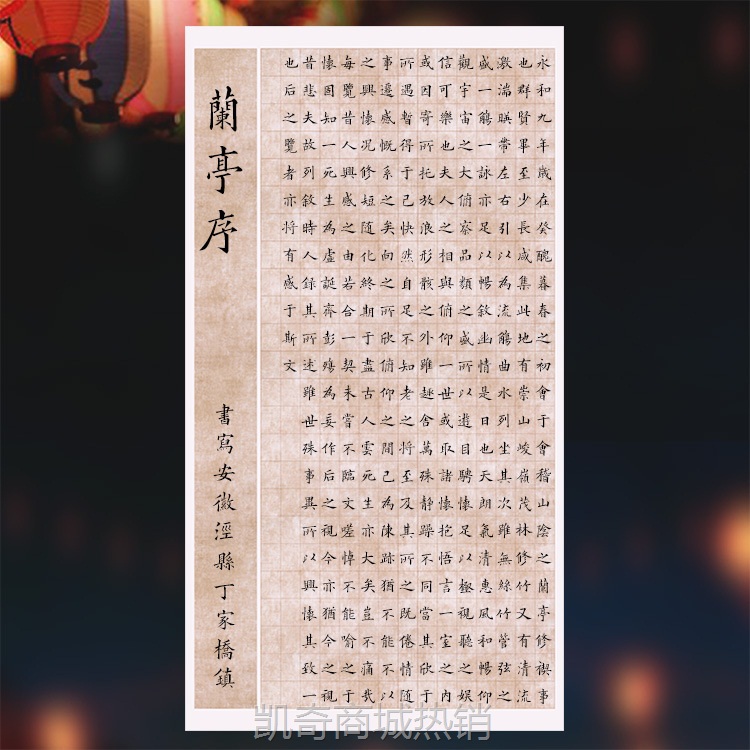 永和九年歲在癸醜暮春之初會于會稽山陰之蘭亭修禊事
也群賢畢至少長咸集此地有崇山峻嶺茂林修竹又有清流
激湍暎帶左右引以為流觴曲水列坐其次雖無絲竹管弦之
盛一觴一詠亦足以暢敘幽情是日也天朗氣清惠風和暢仰
觀宇宙之大俯察品類之盛所以遊目騁懷足以極視聽之娛
信可樂也夫人之相與俯仰一世或取諸懷抱悟言一室之內
或因寄所托放浪形骸之外雖趣舍萬殊靜躁不同當其欣于
所遇暫得于己快然自足不知老之將至及其所之既倦情隨
事遷感慨系之矣向之所欣俯仰之間已為陳跡猶不能不以
之興懷況修短隨化終期于盡古人雲死生亦大矣豈不痛哉
每覽昔人興感之由若合一契未嘗不臨文嗟悼不能喻之于
懷固知一死生為虛誕齊彭殤為妄作后之視今亦猶今之視
昔悲夫故列敘時人錄其所述雖世殊事異所以興懷其致一
也后之覽者亦將有感于斯文
蘭亭序
書寫安徽涇縣丁家橋鎮
凯奇商城热销